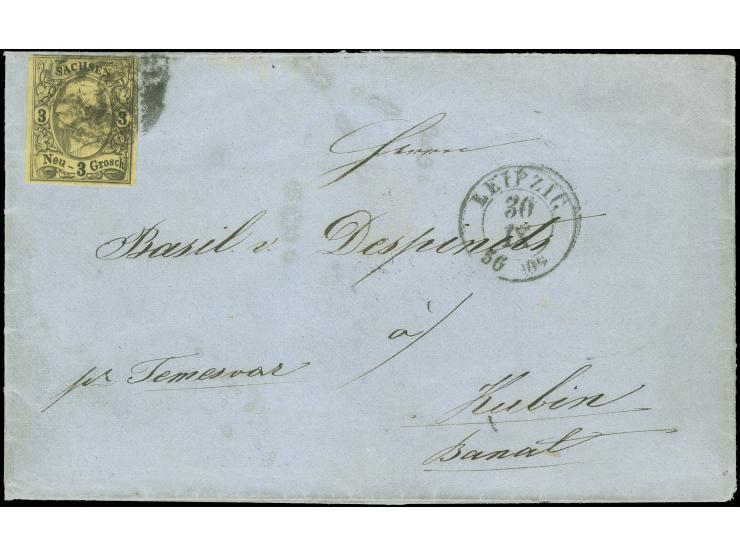 SACHSEN
3 3
Neu - 3 Grosch
LEIPZIG
30
IX
56
Herrn
Basil v. Despinits
à
pr Temesvar
Kubin
Banat